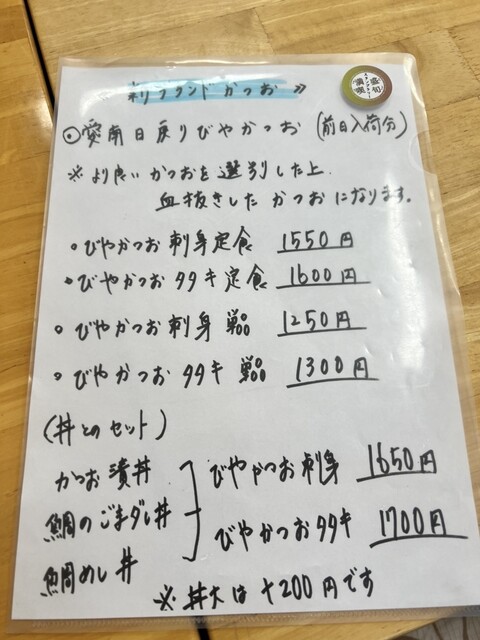 新ブランドかつお》
◎愛南日戻りびやかつお (前日入荷分)
※より良いかつおを選別した上
血抜きしたかつおになります。
・びやかつお刺身定食 1550円
・びやかつおタタキ定食 1600円
・びやかつお刺身単品 1250円
・びやかつおタタキ単品 1300円
(丼とのセット)
かつお漬丼
鯛のごまダレ丼
鯛めし丼
びやかつお刺身 1650円
びやかつおタタキ 1700円
※丼大は+200円です